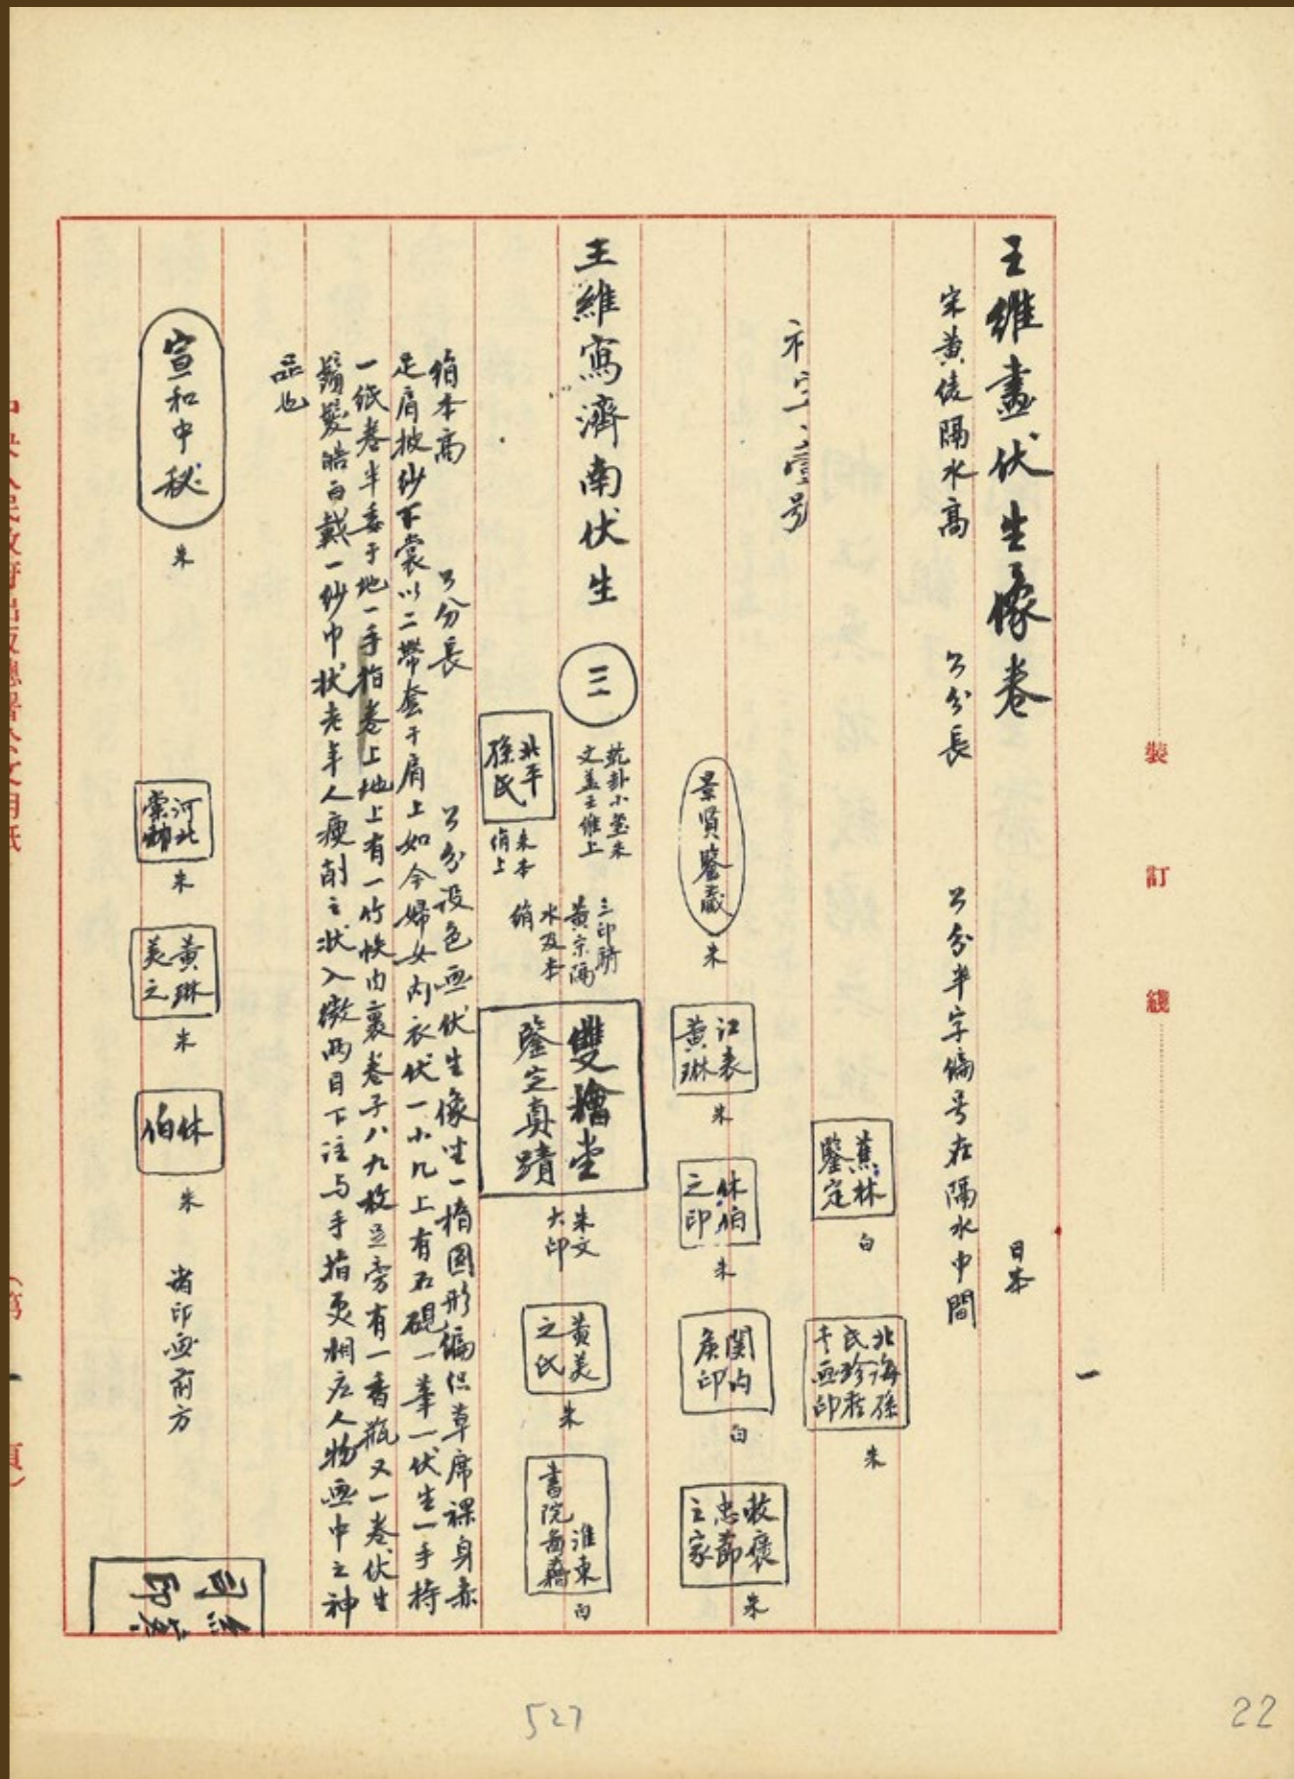 王維畫伏生像卷
日本
宋黃綾隔水高　公分長　公分半字編号在隔水中間
蕉林
鑒定
白
北海孫
氏珍藏
书画印
朱
景賢鑒藏
朱
江表
黃琳
朱
休伯
之印
朱
関内
侯印
白
敕褒
忠節
之家
朱
王維寫濟南伏生
三
乾卦小璽朱
文盖王維上
北平
孫氏
朱本
绢上
三印騎
黃宗隔
水及本
绢
雙檜堂
鑒定真蹟
朱文
大印
黃美
之氏
朱
淮東
書院畨籍
白
绢本高　公分長　公分設色画伏生像坐一橢圓形編织草席裸身赤
足肩披纱下裳以二帶套于肩上如今婦女内衣伏一小几上有石硯一筆一伏生一手持
一纸卷半垂于地一手指卷上地上有一竹帙内裹卷子八九枚并旁有一香瓶又一卷伏生
鬚髮皓白戴一纱巾状老年人瘦削之状入微两目下注与手指更相应人物画中之神
品也
宣和中秘
朱
河北
棠村
朱
黃琳
美之
朱
休
伯
朱
省印画前方
裝
訂
綫
一
527
22